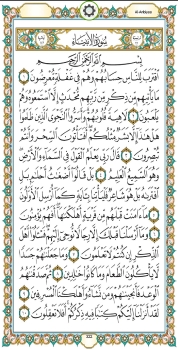 Al Anbiyaa
سُورَةُ الأَنبِيَاءِ
بِسْمِ ٱللَّهِ ٱلرَّحْمَٰنِ ٱلرَّحِيمِ
ٱقْتَرَبَ لِلنَّاسِ حِسَابُهُمْ وَهُمْ فِى غَفْلَةٍ مُّعْرِضُونَ ١
مَا يَأْتِيهِم مِّن ذِكْرٍ مِّن رَّبِّهِم مُّحْدَثٍ إِلَّا ٱسْتَمَعُوهُ وَهُمْ
يَلْعَبُونَ ٢ لَاهِيَةً قُلُوبُهُمْ وَأَسَرُّوا۟ ٱلنَّجْوَى ٱلَّذِينَ ظَلَمُوا۟
هَلْ هَٰذَآ إِلَّا بَشَرٌ مِّثْلُكُمْ أَفَتَأْتُونَ ٱلسِّحْرَ وَأَنتُمْ
تُبْصِرُونَ ٣ قَالَ رَبِّى يَعْلَمُ ٱلْقَوْلَ فِى ٱلسَّمَآءِ وَٱلْأَرْضِ
وَهُوَ ٱلسَّمِيعُ ٱلْعَلِيمُ ٤ بَلْ قَالُوٓا۟ أَضْغَٰثُ أَحْلَٰمٍۭ بَلِ
ٱفْتَرَىٰهُ بَلْ هُوَ شَاعِرٌ فَلْيَأْتِنَا بِـَٔايَةٍ كَمَآ أُرْسِلَ ٱلْأَوَّلُونَ ٥
مَآ ءَامَنَتْ قَبْلَهُم مِّن قَرْيَةٍ أَهْلَكْنَٰهَآ أَفَهُمْ يُؤْمِنُونَ ٦
وَمَآ أَرْسَلْنَا قَبْلَكَ إِلَّا رِجَالًا نُّوحِىٓ إِلَيْهِمْ فَسْـَٔلُوٓا۟ أَهْلَ
ٱلذِّكْرِ إِن كُنتُمْ لَا تَعْلَمُونَ ٧ وَمَا جَعَلْنَٰهُمْ جَسَدًا
لَّا يَأْكُلُونَ ٱلطَّعَامَ وَمَا كَانُوا۟ خَٰلِدِينَ ٨ ثُمَّ صَدَقْنَٰهُمُ
ٱلْوَعْدَ فَأَنجَيْنَٰهُمْ وَمَن نَّشَآءُ وَأَهْلَكْنَا ٱلْمُسْرِفِينَ ٩
لَقَدْ أَنزَلْنَآ إِلَيْكُمْ كِتَٰبًا فِيهِ ذِكْرُكُمْ أَفَلَا تَعْقِلُونَ ١٠
322